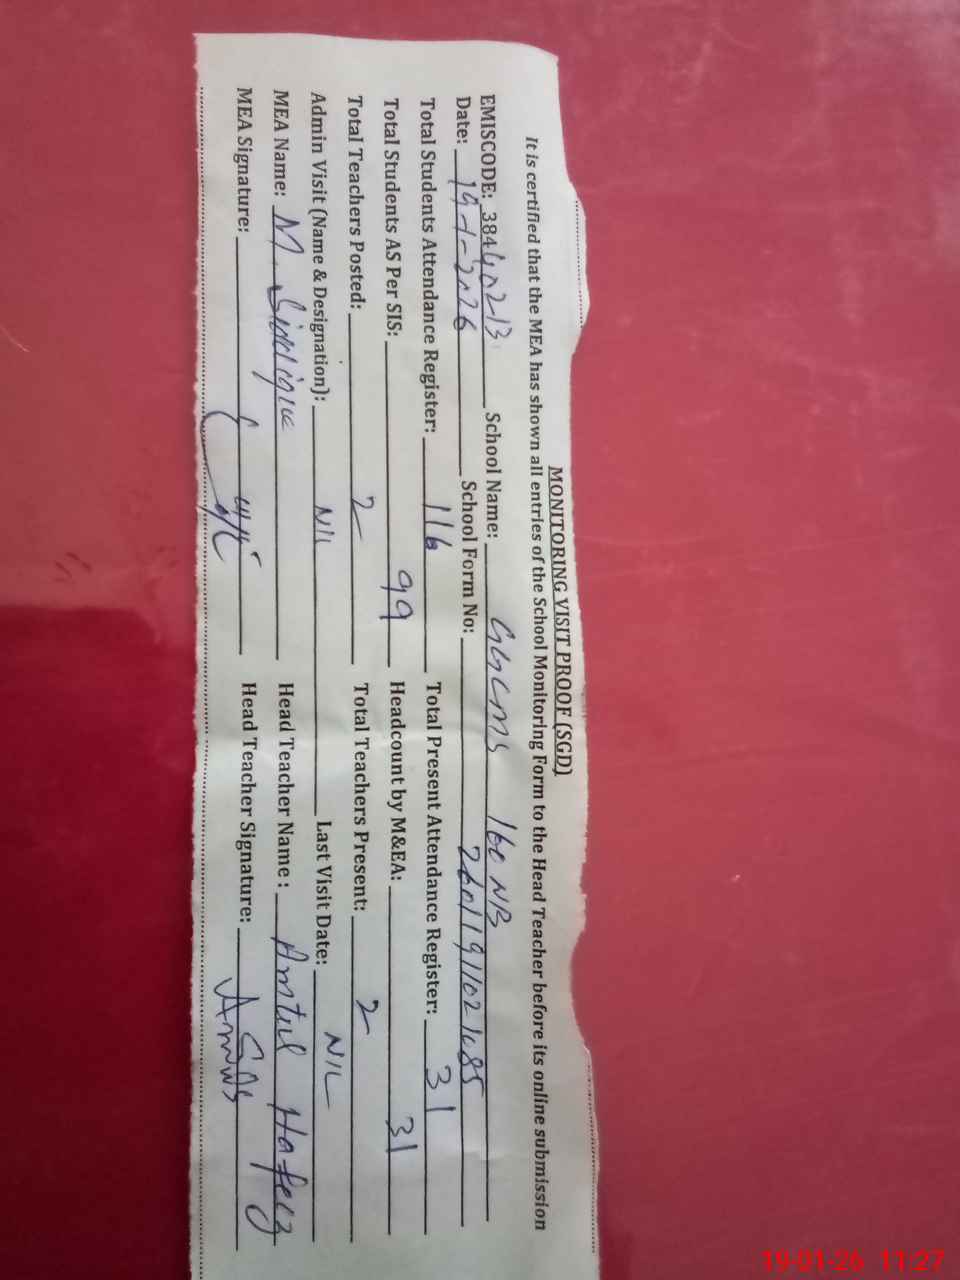 MONITORING VISIT PROOF (SGD)
It is certified that the MEA has shown all entries of the School Monitoring Form to the Head Teacher before its online submission
EMISCODE: 38440213 School Name: GGCMS 160 NB
Date: 19-1-2026 School Form No:
Total Students Attendance Register: 116 Total Present Attendance Register: 31
Total Students AS Per SIS: 99 Headcount by M&EA: 31
Total Teachers Posted: 2 Total Teachers Present: 2
Admin Visit (Name & Designation): NIL Last Visit Date: NIL
MEA Name: M. Siddique Head Teacher Name: Amtul Hafeez
MEA Signature: Head Teacher Signature:
19-01-26 11:27